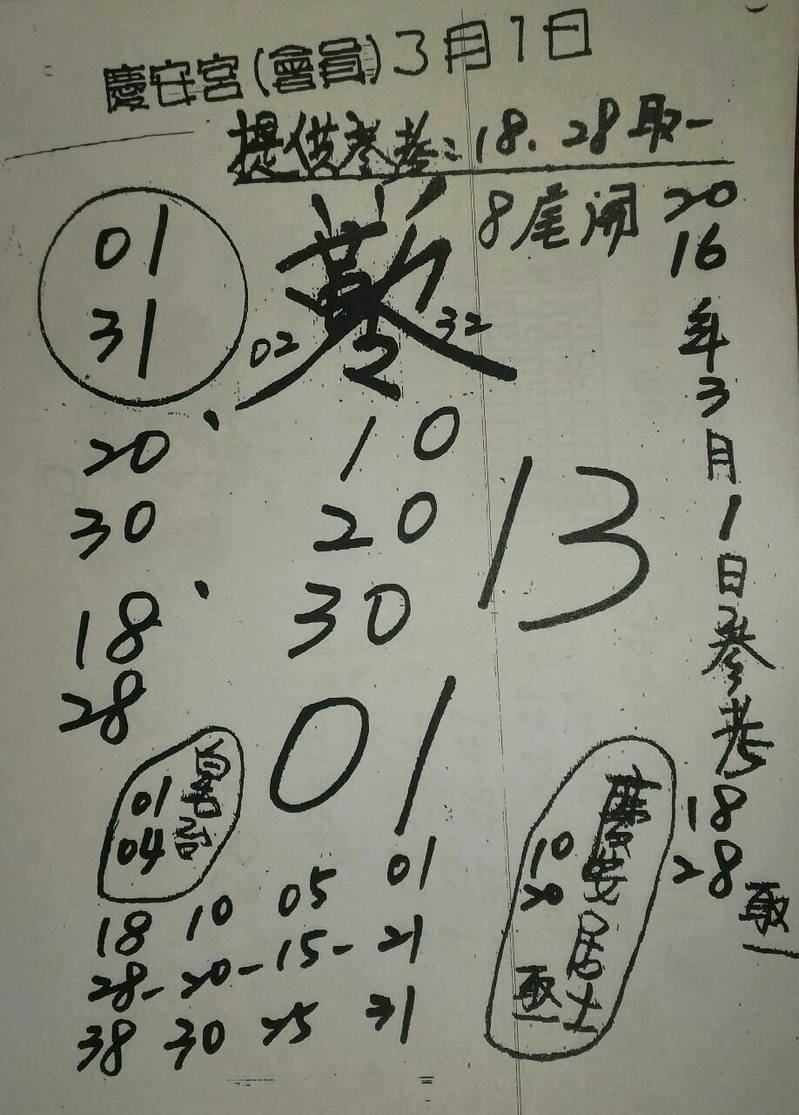 慶安宮(會員)3月1日
提供參考:18.28取一
8尾開
2016年3月1日參考18 28取一
01
31
02 32
20
30
18
28
10
20
30
13
01
01
04
慶安居士
10
20
取一
18 10 05 01
28-20-15-21
38 30 25 31